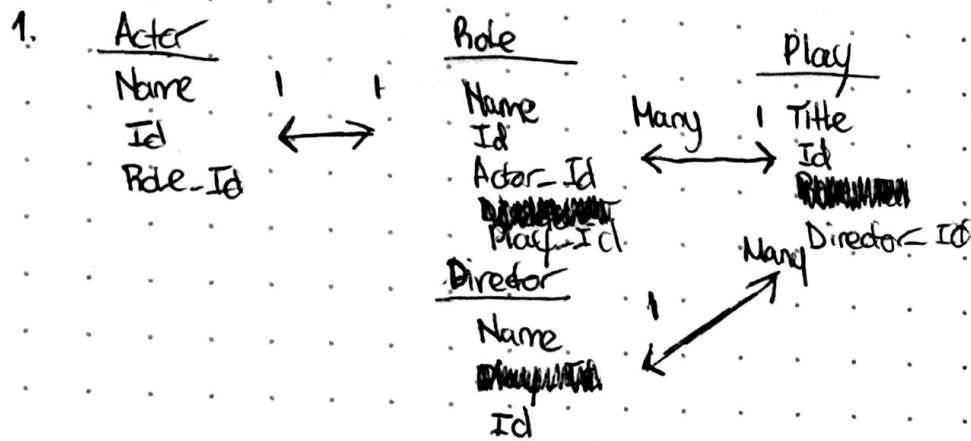 1.
Actor
Name
Id
Role_Id
1 1
Role
Name
Id
Actor_Id
Play_Id
Many 1
Play
Title
Id
Director_Id
Director
Name
Id
1 Many